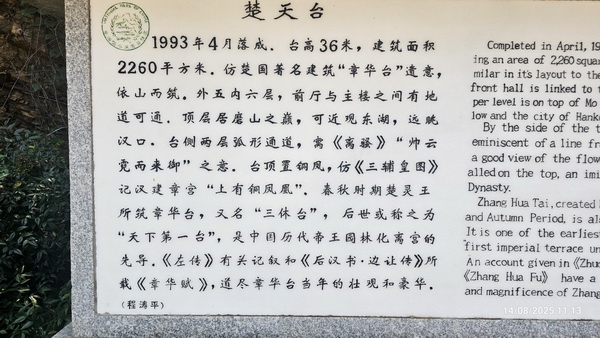 楚天台
1993年4月落成．台高36米，建筑面积
2260平方米．仿楚国著名建筑“章华台”遗意，
依山而筑．外五内六层，前厅与主楼之间有地
道可通．顶层居磨山之巅，可近观东湖，远眺
汉口．台侧两层弧形通道，寓《离骚》“帅云
霓而来御”之意．台顶置铜凤，仿《三辅皇图》
记汉建章宫“上有铜凤凰”．春秋时期楚灵王
所筑章华台，又名“三休台”，后世或称之为
“天下第一台”，是中国历代帝王园林化离宫的
先导，《左传》有关记叙和《后汉书·边让传》所
载《章华赋》，道尽章华台当年的壮观和豪华．
(程涛平)
Completed in April, 19
ing an area of 2,260 squa
milar in it's layout to the
front hall is linked to t
per level is on top of Mo
low and the city of Hank
By the side of the t
eminiscent of a line fr
a good view of the flow
alled on the top, an imi
Dynasty.
Zhang Hua Tai, created
and Autumn Period, is al
It is one of the earlies
first imperial terrace un
An account given in《Zhu
《Zhang Hua Fu》 have a
and magnificence of Zhang
14/08/2025 11:13